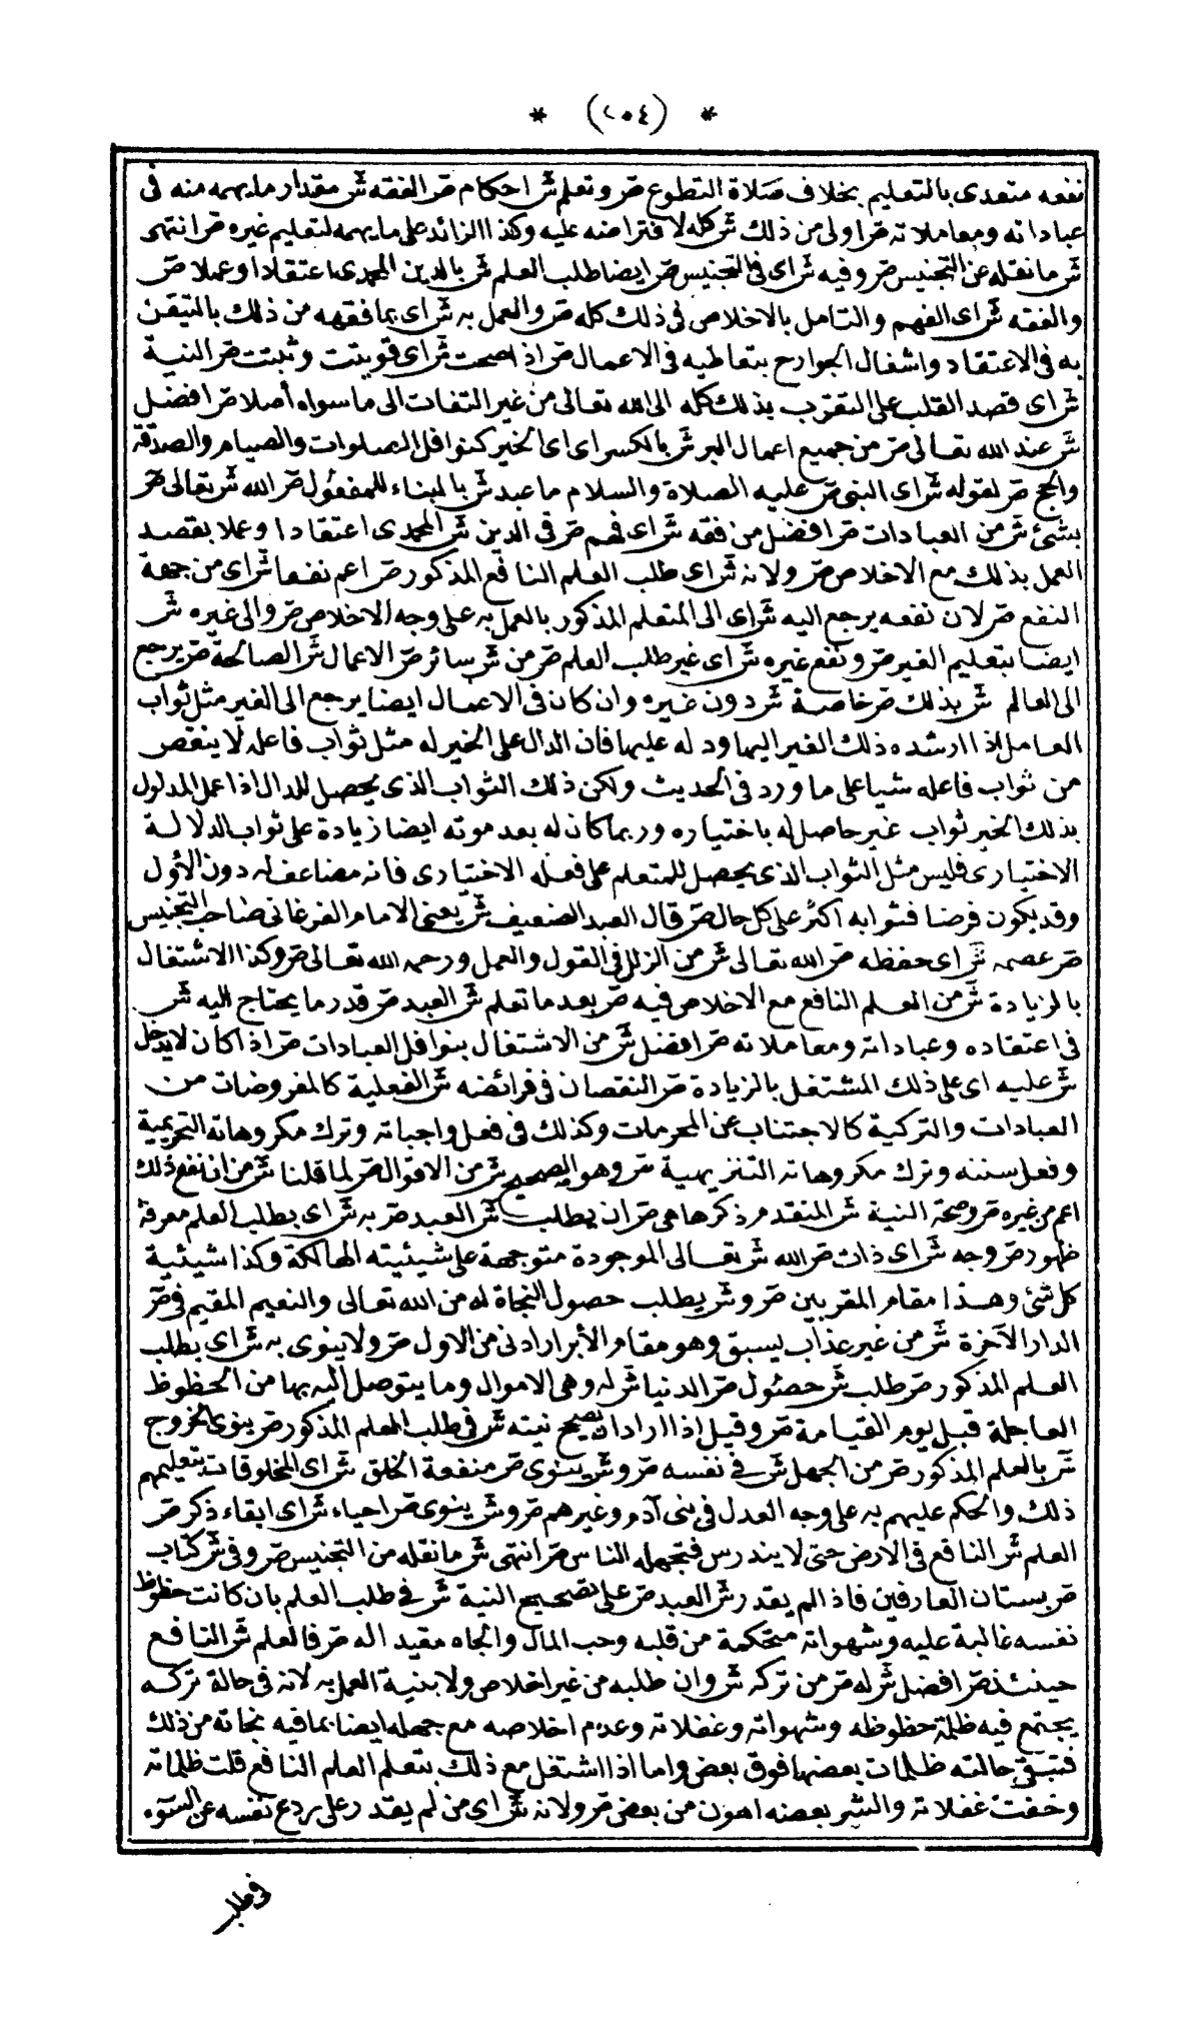 * (٢٠٤) *
نفعه متعدى بالتعليم بخلاف صلاة التطوع صر وتعلم شر احكام صر الفقه شر مقدار ما يهمه منه فى
عباداته ومعاملاته صر اولى من ذلك شر كله لافتراضه عليه وكذا الزائد على ما يهمه لتعليم غيره صر انتهى
شر ما نقله عن التجنيس صر وفيه شر اى فى التجنيس صر ايضا طلب العلم شر بالدين المحمدى اعتقادا وعملا صر
والفقه شر اى الفهم والتامل بالاخلاص فى ذلك كله صر والعمل به شر اى بما فقهه من ذلك بالتيقن
به فى الاعتقاد واشغال الجوارح بتعاطيه فى الاعمال صر اذا صحت شر اى قويت وثبتت صر النية
شر اى قصد القلب على التقرب بذلك كله الى الله تعالى من غير التفات الى ما سواه أصلا صر افضل
شر عند الله تعالى صر من جميع اعمال البر شر بالكسر اى اى الخير كنوافل الصلوات والصيام والصدقة
والحج صر لقوله شر اى النبى صر عليه الصلاة والسلام ما عبد شر بالبناء للمفعول صر الله شر تعالى صر
بشئ شر من العبادات صر افضل من فقه شر اى فهم صر فى الدين شر المحمدى اعتقادا وعملا بقصد
العمل بذلك مع الاخلاص صر ولانه شر اى طلب العلم النافع المذكور صر اعم نفعا شر اى من جهة
النفع صر لان نفعه يرجع اليه شر اى الى المتعلم المذكور بالعمل به على وجه الاخلاص صر والى غيره شر
ايضا بتعليم الغير صر ونفع غيره شر اى غير طلب العلم صر من شر سائر صر الاعمال شر الصالحة صر يرجع
الى العالم شر بذلك صر خاصة شر دون غيره وان كان فى الاعمال ايضا يرجع الى الغير مثل ثواب
العامل اذا ارشده ذلك الغير اليها ودله عليها فان الدال على الخير له مثل ثواب فاعله لا ينقص
من ثواب فاعله شيا على ما ورد فى الحديث ولكن ذلك الثواب الذى يحصل للدال اذا عمل المدلول
بذلك الخير ثواب غير حاصل له باختياره وربما كان له بعد موته ايضا زيادة على ثواب الدلالة
الاختيارى فليس مثل الثواب الذى يحصل للمتعلم على فعله الاختيارى فانه مضاعف له دون الأول
وقد يكون فرضا فثوابه اكثر على كل حال صر قال العبد الضعيف شر يعنى الامام الفرغانى صاحب التجنيس
صر عصمه شر اى حفظه صر الله تعالى شر من الزلل فى القول والعمل ورحمه الله تعالى صر وكذا الاشتغال
بالزيادة شر من العلم النافع مع الاخلاص فيه صر بعد ما تعلم شر العبد صر قدر ما يحتاج اليه شر
فى اعتقاده وعباداته ومعاملاته صر افضل شر من الاشتغال بنوافل العبادات صر اذا كان لا يدخل
شر عليه اى على ذلك المشتغل بالزيادة صر النقصان فى فرائضه شر الفعلية كالمفروضات من
العبادات والتركية كالاجتناب عن المحرمات وكذلك فى فعل واجباته وترك مكروهاته التحريمية
وفعل سننه وترك مكروهاته التنزيهية صر وهو الصحيح شر من الاقوال صر لما قلنا شر من ان نفع ذلك
اعم من غيره صر وصحة النية شر المتقدم ذكرها هى صر ان يطلب شر العبد صر به شر اى بطلب العلم معرفة
ظهور صر وجه شر اى ذات صر الله شر تعالى الموجودة متوجهة على شيئيته الهالكة وكذا شيئية
كل شئ وهذا مقام المقربين صر و شر يطلب حصول النجاة له من الله تعالى والنعيم المقيم فى صر
الدار الآخرة شر من غير عذاب يسبق وهو مقام الأبرار ادنى من الاول صر ولا ينوى به شر اى بطلب
العلم المذكور صر طلب شر حصول صر الدنيا شر له وهى الاموال وما يتوصل اليه بها من الحظوظ
العاجلة قبل يوم القيامة صر وقيل اذا اراد ان يصحح نيته شر فى طلب العلم المذكور صر ينوى الخروج
شر بالعلم المذكور صر من الجهل شر فى نفسه صر و شر ينوى صر منفعة الخلق شر اى المخلوقات بتعليمهم
ذلك والحكم عليهم به على وجه العدل فى بنى آدم وغيرهم صر و شر ينوى صر احياء شر اى ابقاء ذكر صر
العلم شر النافع فى الارض حتى لا يندرس فتجهله الناس صر انتهى شر ما نقله من التجنيس صر وفى شر كتاب
صر بستان العارفين فاذا لم يقدر شر العبد صر على تصحيح النية شر فى طلب العلم بان كانت حظوظ
نفسه غالبة عليه وشهواته متحكمة من قلبه وحب المال والجاه مقيدا له صر فالعلم شر النافع
حينئذ صر افضل شر له صر من تركه شر وان طلبه من غير اخلاص ولا بنية العمل به لانه فى حالة تركه
يجتمع فيه ظلمة حظوظه وشهواته وغفلاته وعدم اخلاصه مع جهله ايضا بما فيه نجاته من ذلك
فتبقى حالته ظلمات بعضها فوق بعض واما اذا اشتغل مع ذلك بتعلم العلم النافع قلت ظلماته
وخفت غفلاته والشر بعضه اهون من بعض صر ولانه شر اى من لم يقدر على ردع نفسه عن السوء
فى طلب